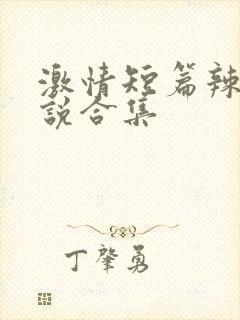 激情短篇辣
說合集
丁肇勇